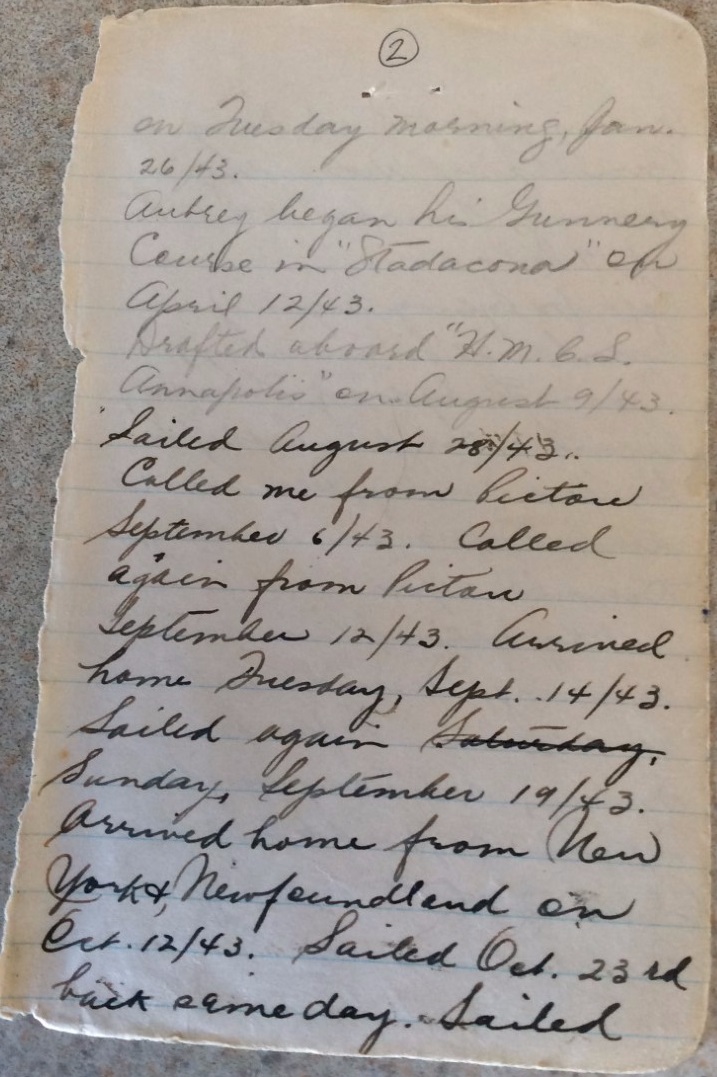 2
on Tuesday morning, Jan.
26/43.
Aubrey began his Gunnery
Course in "Stadacona" on
April 12/43.
Drafted aboard "H.M.C.S.
Annapolis" on August 9/43.
Sailed August 28/43.
Called me from Pictou
September 6/43. Called
again from Pictou
September 12/43. Arrived
home Tuesday, Sept. 14/43.
Sailed again Saturday,
Sunday, September 19/43.
Arrived home from New
York &, Newfoundland on
Oct. 12/43. Sailed Oct. 23rd
back same day. Sailed